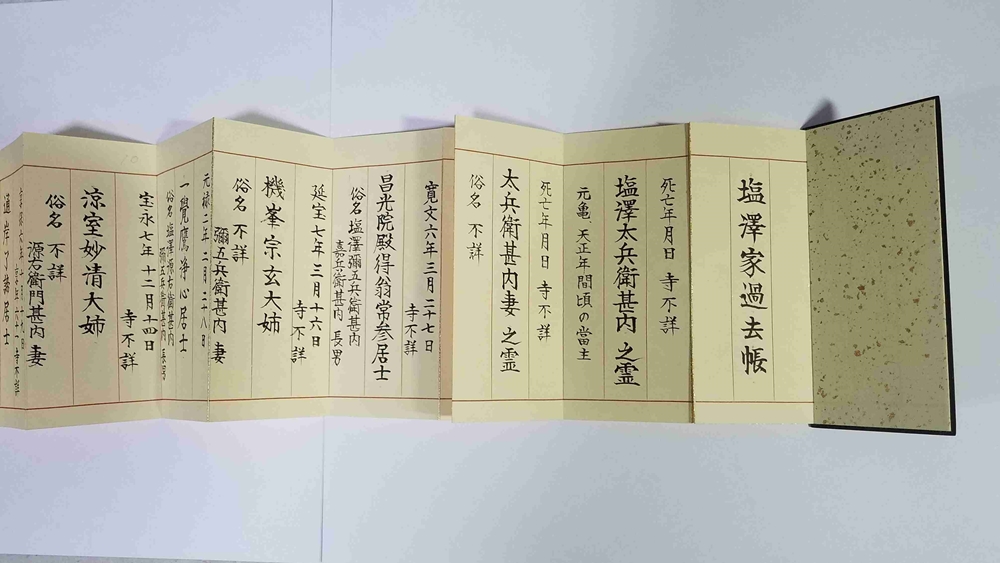 塩澤家過去帳
死亡年月日 寺不詳
塩澤太兵衛甚内 之霊
元亀 天正年間頃の當主
死亡年月日 寺不詳
太兵衛甚内妻 之霊
俗名 不詳
寛文六年三月二十七日
寺不詳
昌光院殿得翁常参居士
俗名 塩澤彌五兵衛甚内
嘉兵衛甚内 長男
延宝七年三月十六日
寺不詳
機峯宗玄大姉
俗名 不詳
彌五兵衛甚内 妻
元禄二年二月二十八日
一覺鷹浄心居士
俗名 塩澤源右衛門甚内
彌五兵衛甚内 長男
宝永七年十二月十四日
寺不詳
涼室妙清大姉
俗名 不詳
源右衛門甚内 妻
寺不詳
通岸了 居士